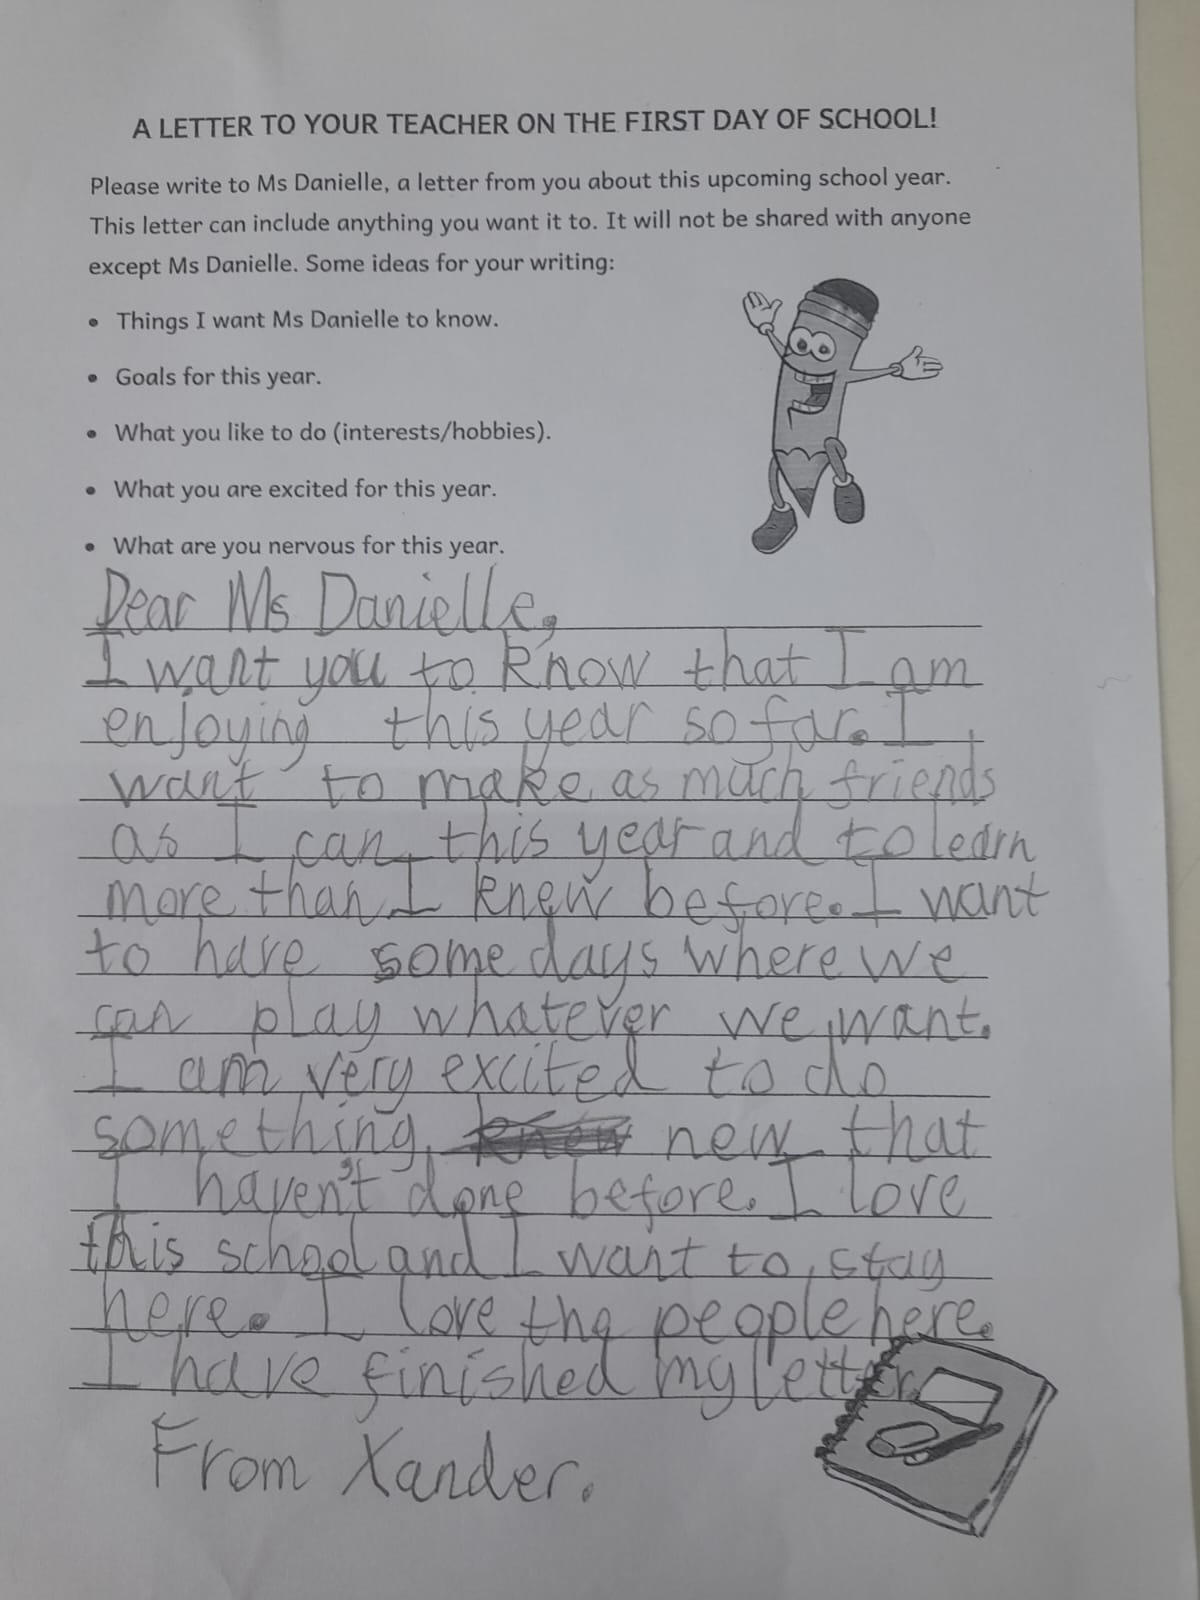 A LETTER TO YOUR TEACHER ON THE FIRST DAY OF SCHOOL!
Please write to Ms Danielle, a letter from you about this upcoming school year.
This letter can include anything you want it to. It will not be shared with anyone
except Ms Danielle. Some ideas for your writing:
• Things I want Ms Danielle to know.
• Goals for this year.
• What you like to do (interests/hobbies).
• What you are excited for this year.
• What are you nervous for this year.
Dear Ms Danielle,
I want you to know that I am
enjoying this year so far. I
want to make as much friends
as I can this year and to learn
more than I knew before. I want
to have some days where we
can play whatever we want.
I am very excited to do
something knew new that
I haven't done before. I love
this school and I want to stay
here. I love the people here.
I have finished my letter.
From Xander.